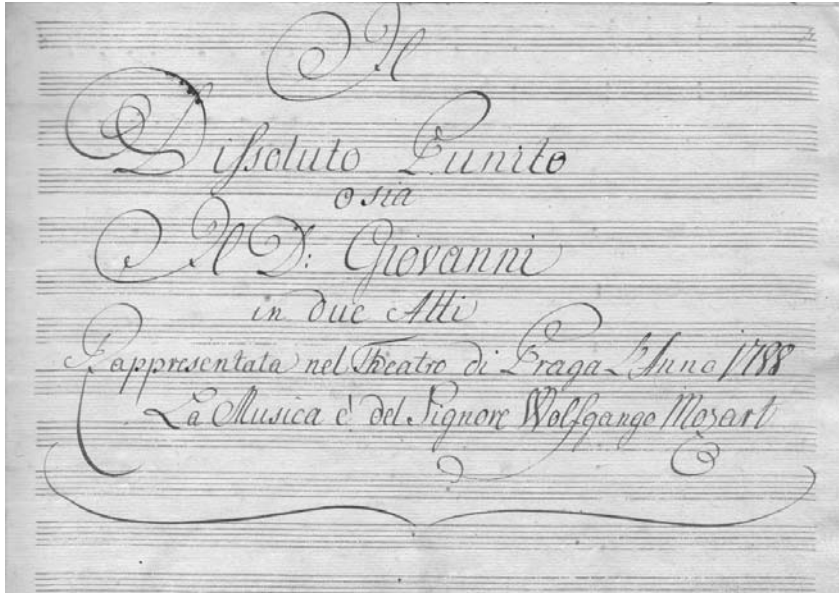 Il
Dissoluto Punito
o sia
Il D: Giovanni
in due Atti
Rappresentata nel Theatro di Praga L'Anno 1788
La Musica è del Signore Wolfgango Mozart